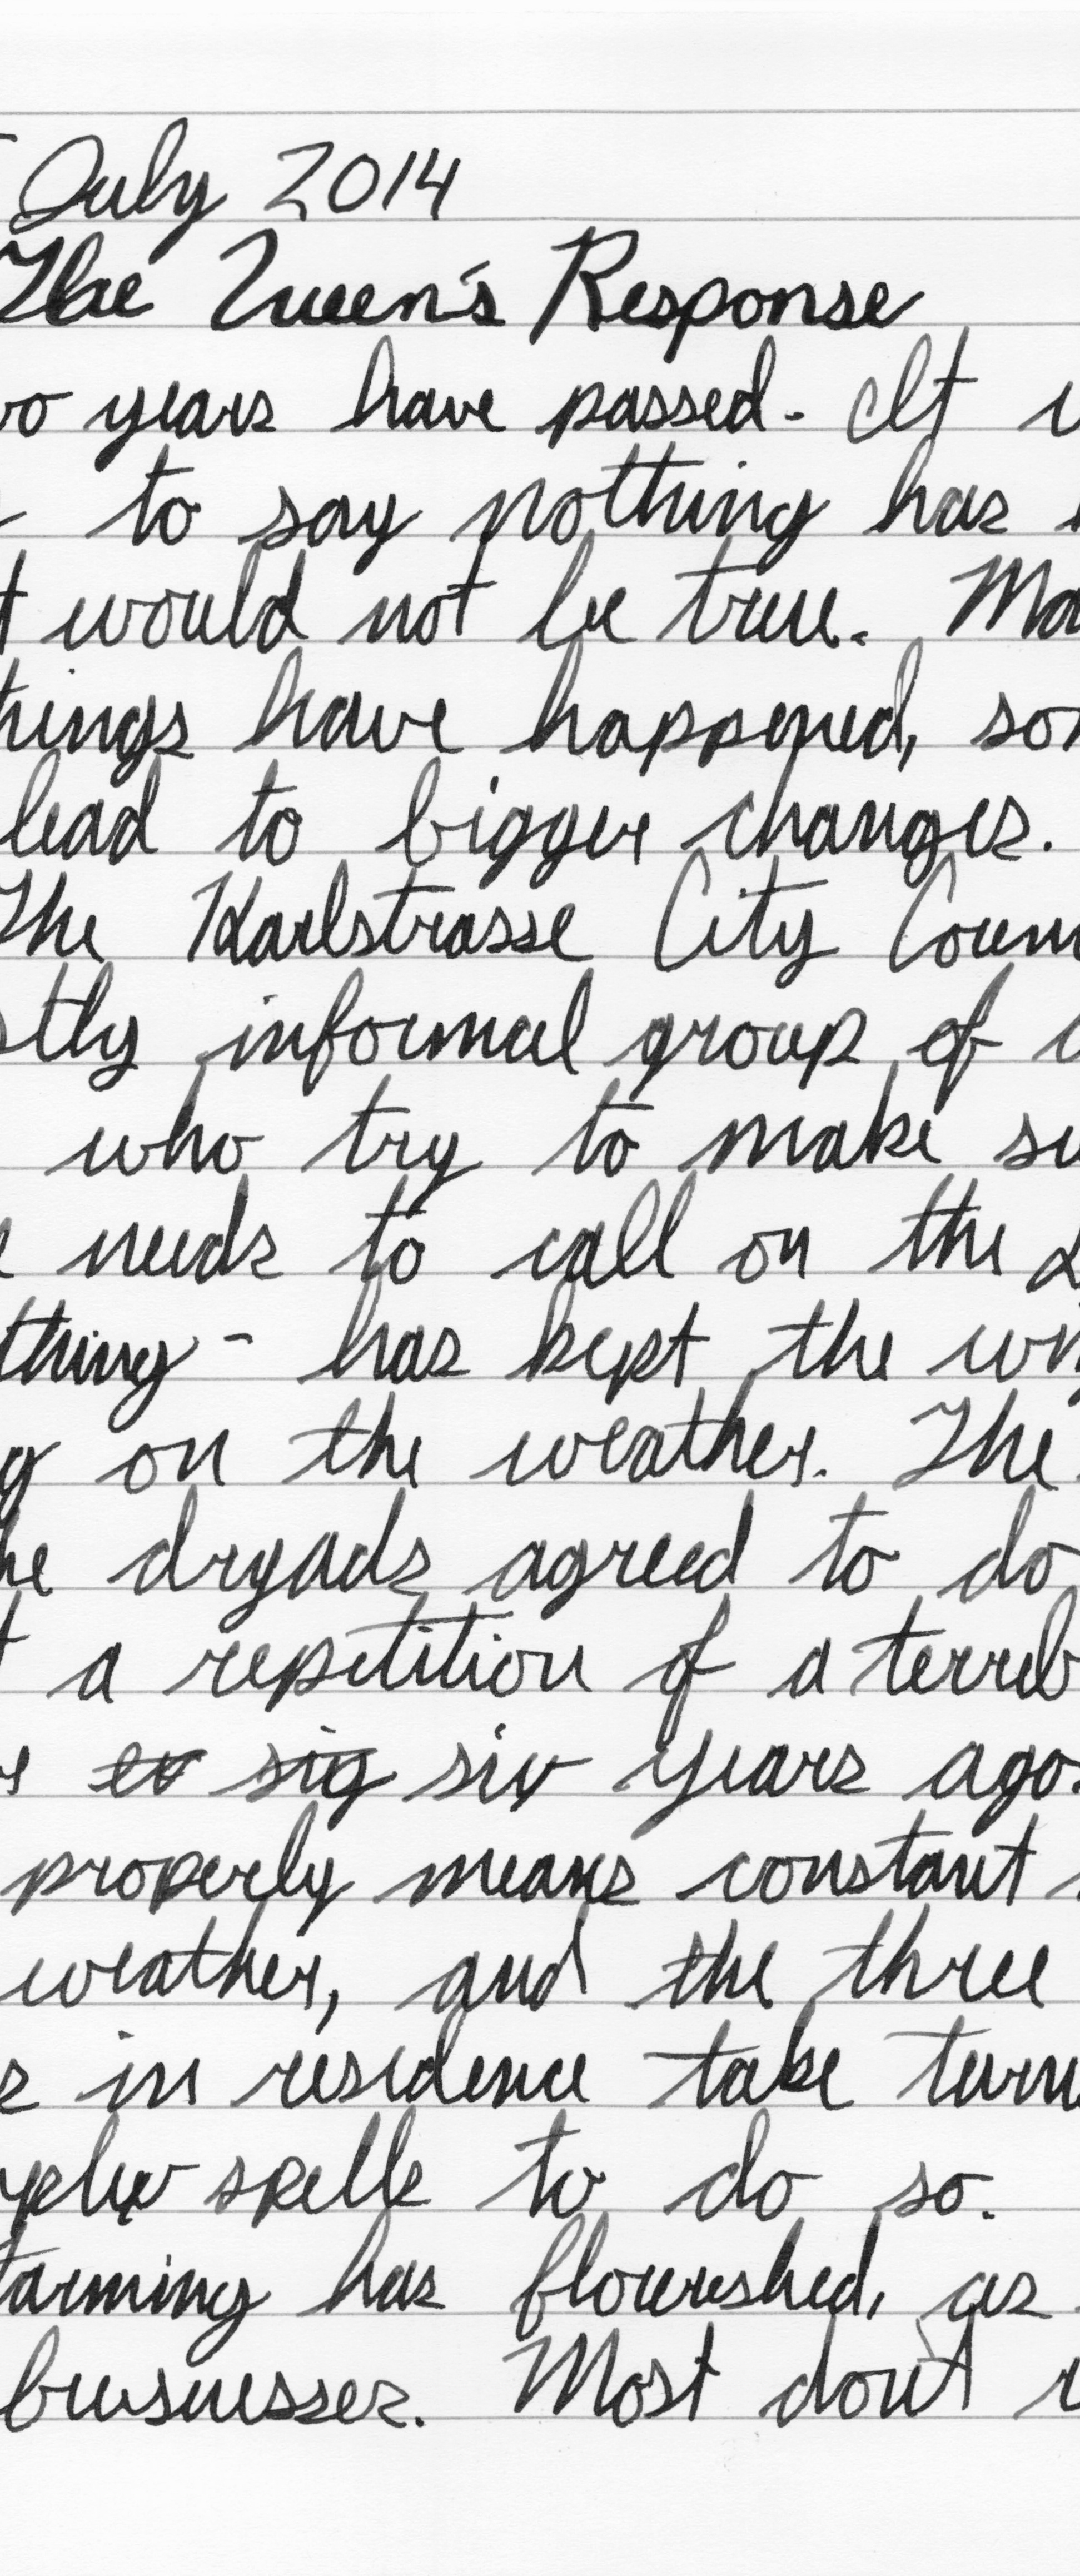 July 2014
The Queen's Response
years have passed. It
to say nothing has
would not be true.
have happened,
lead to bigger changes.
The Karlstrasse City
informal group of
who try to make
needs to call on the
thing - has kept the
on the weather. The
dryads agreed to do
a repetition of a
six years ago.
properly means constant
weather, and the three
in residence take
spells to do so.
has flourished, as
businesses. Most don't